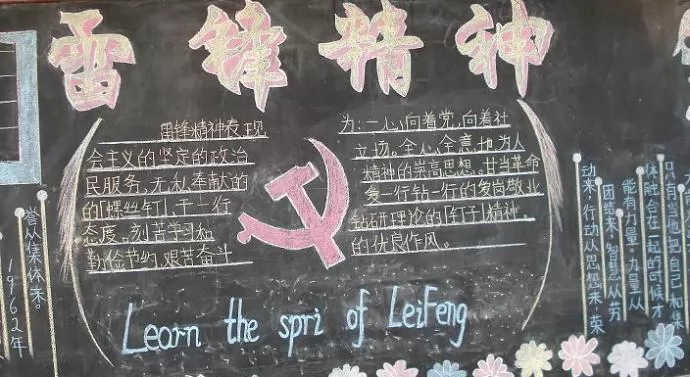 雷锋精神
雷锋精神表现
会主义的坚定的政治
民服务,无私奉献的
的「螺丝钉」,干一行
态度。刻苦学习和
勤俭节约,艰苦奋斗
为:一心向着党,向着社
立场。全心全意地为人
精神的崇高思想。甘当革命
爱一行钻一行的爱岗敬业
钻研理论的「钉子」精神。
的优良作风。
Learn the spri of LeiFeng
只有当他把自己和集
体融合在一起的时候才
能有力量。力量从
团结来,智慧从劳
动来,行动从思想来,荣
誉从集体来。
1962年